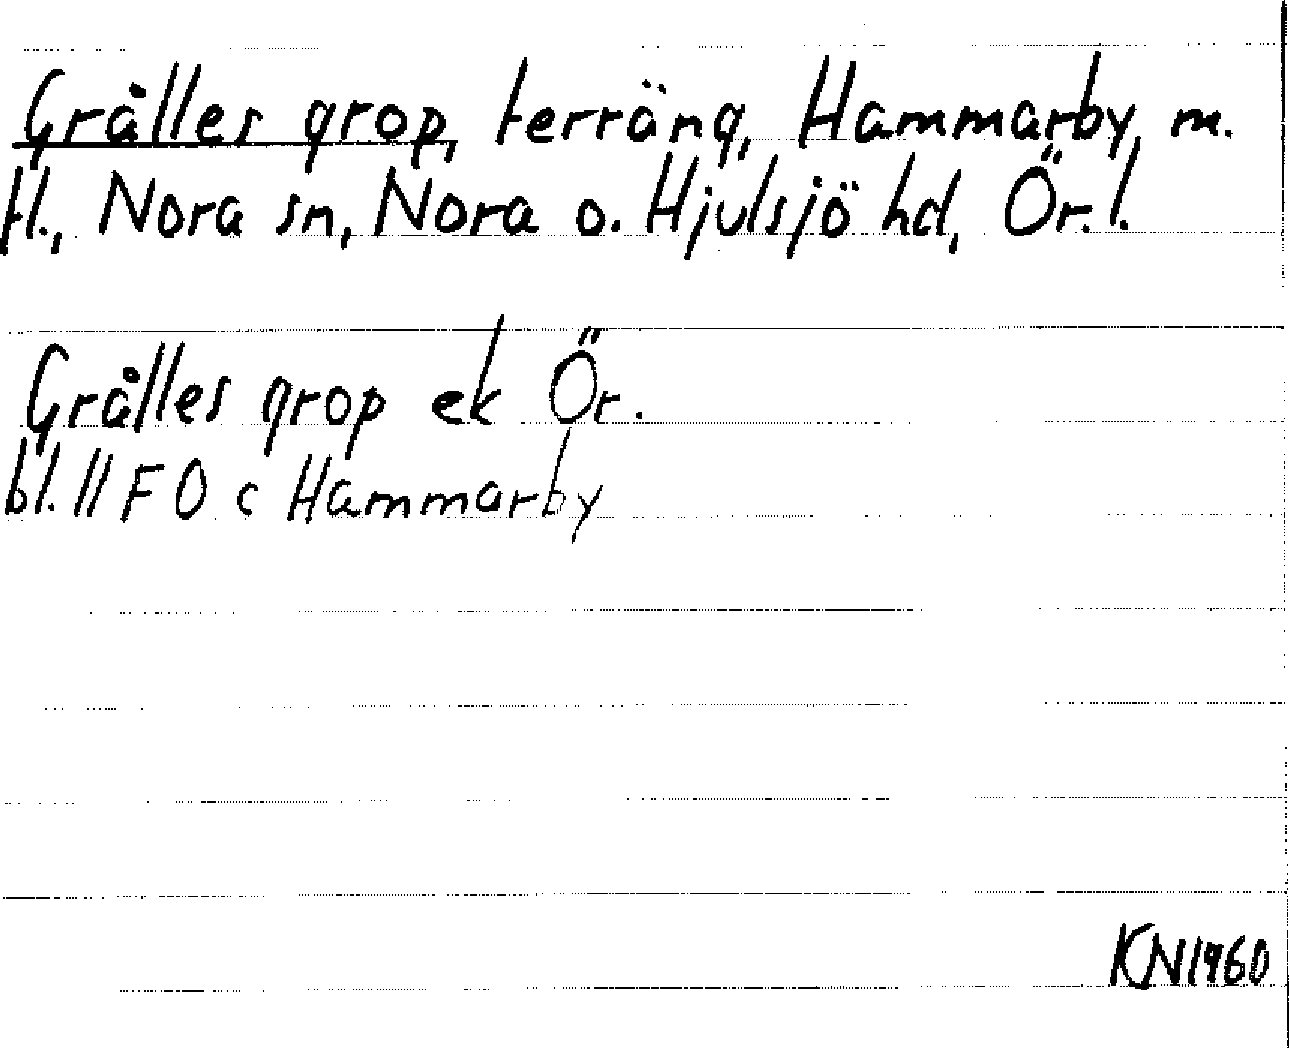 Grålles grop, terräng, Hammarby, m.
fl., Nora sn, Nora o. Hjulsjö hd, Ör. l.
Grålles grop ek Ör.
bl. 11 F 0 c Hammarby
KN 1960